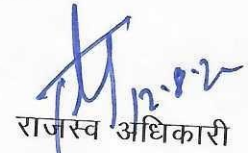 12.8.2
राजस्व अधिकारी